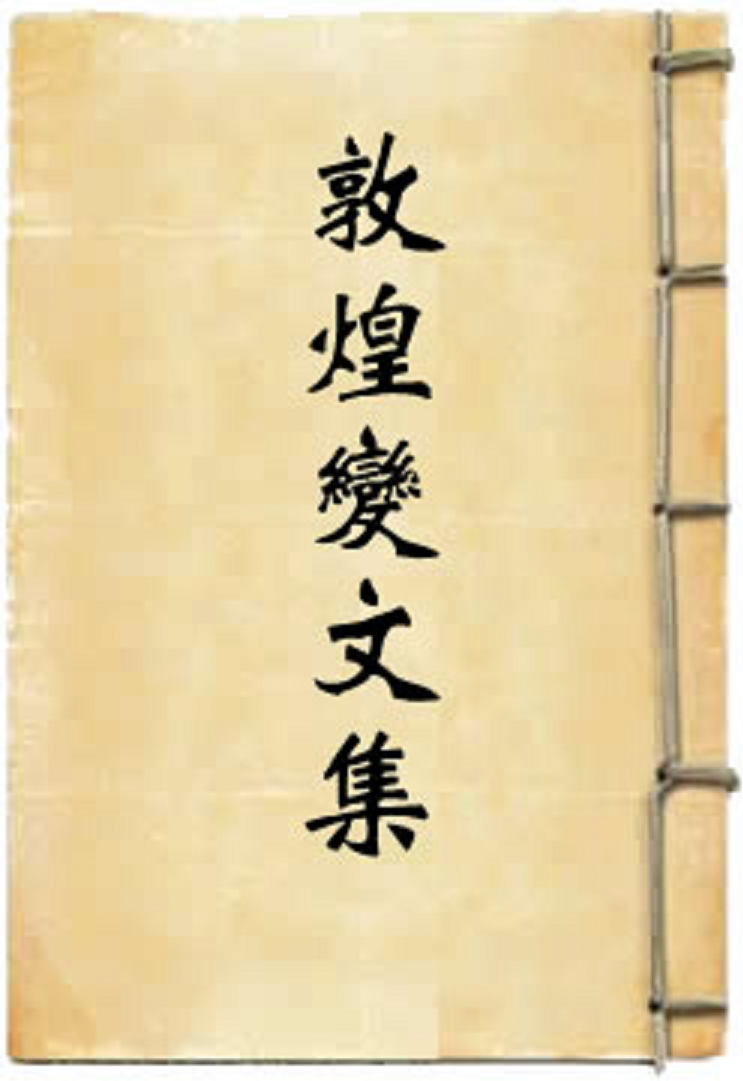 敦煌變文集